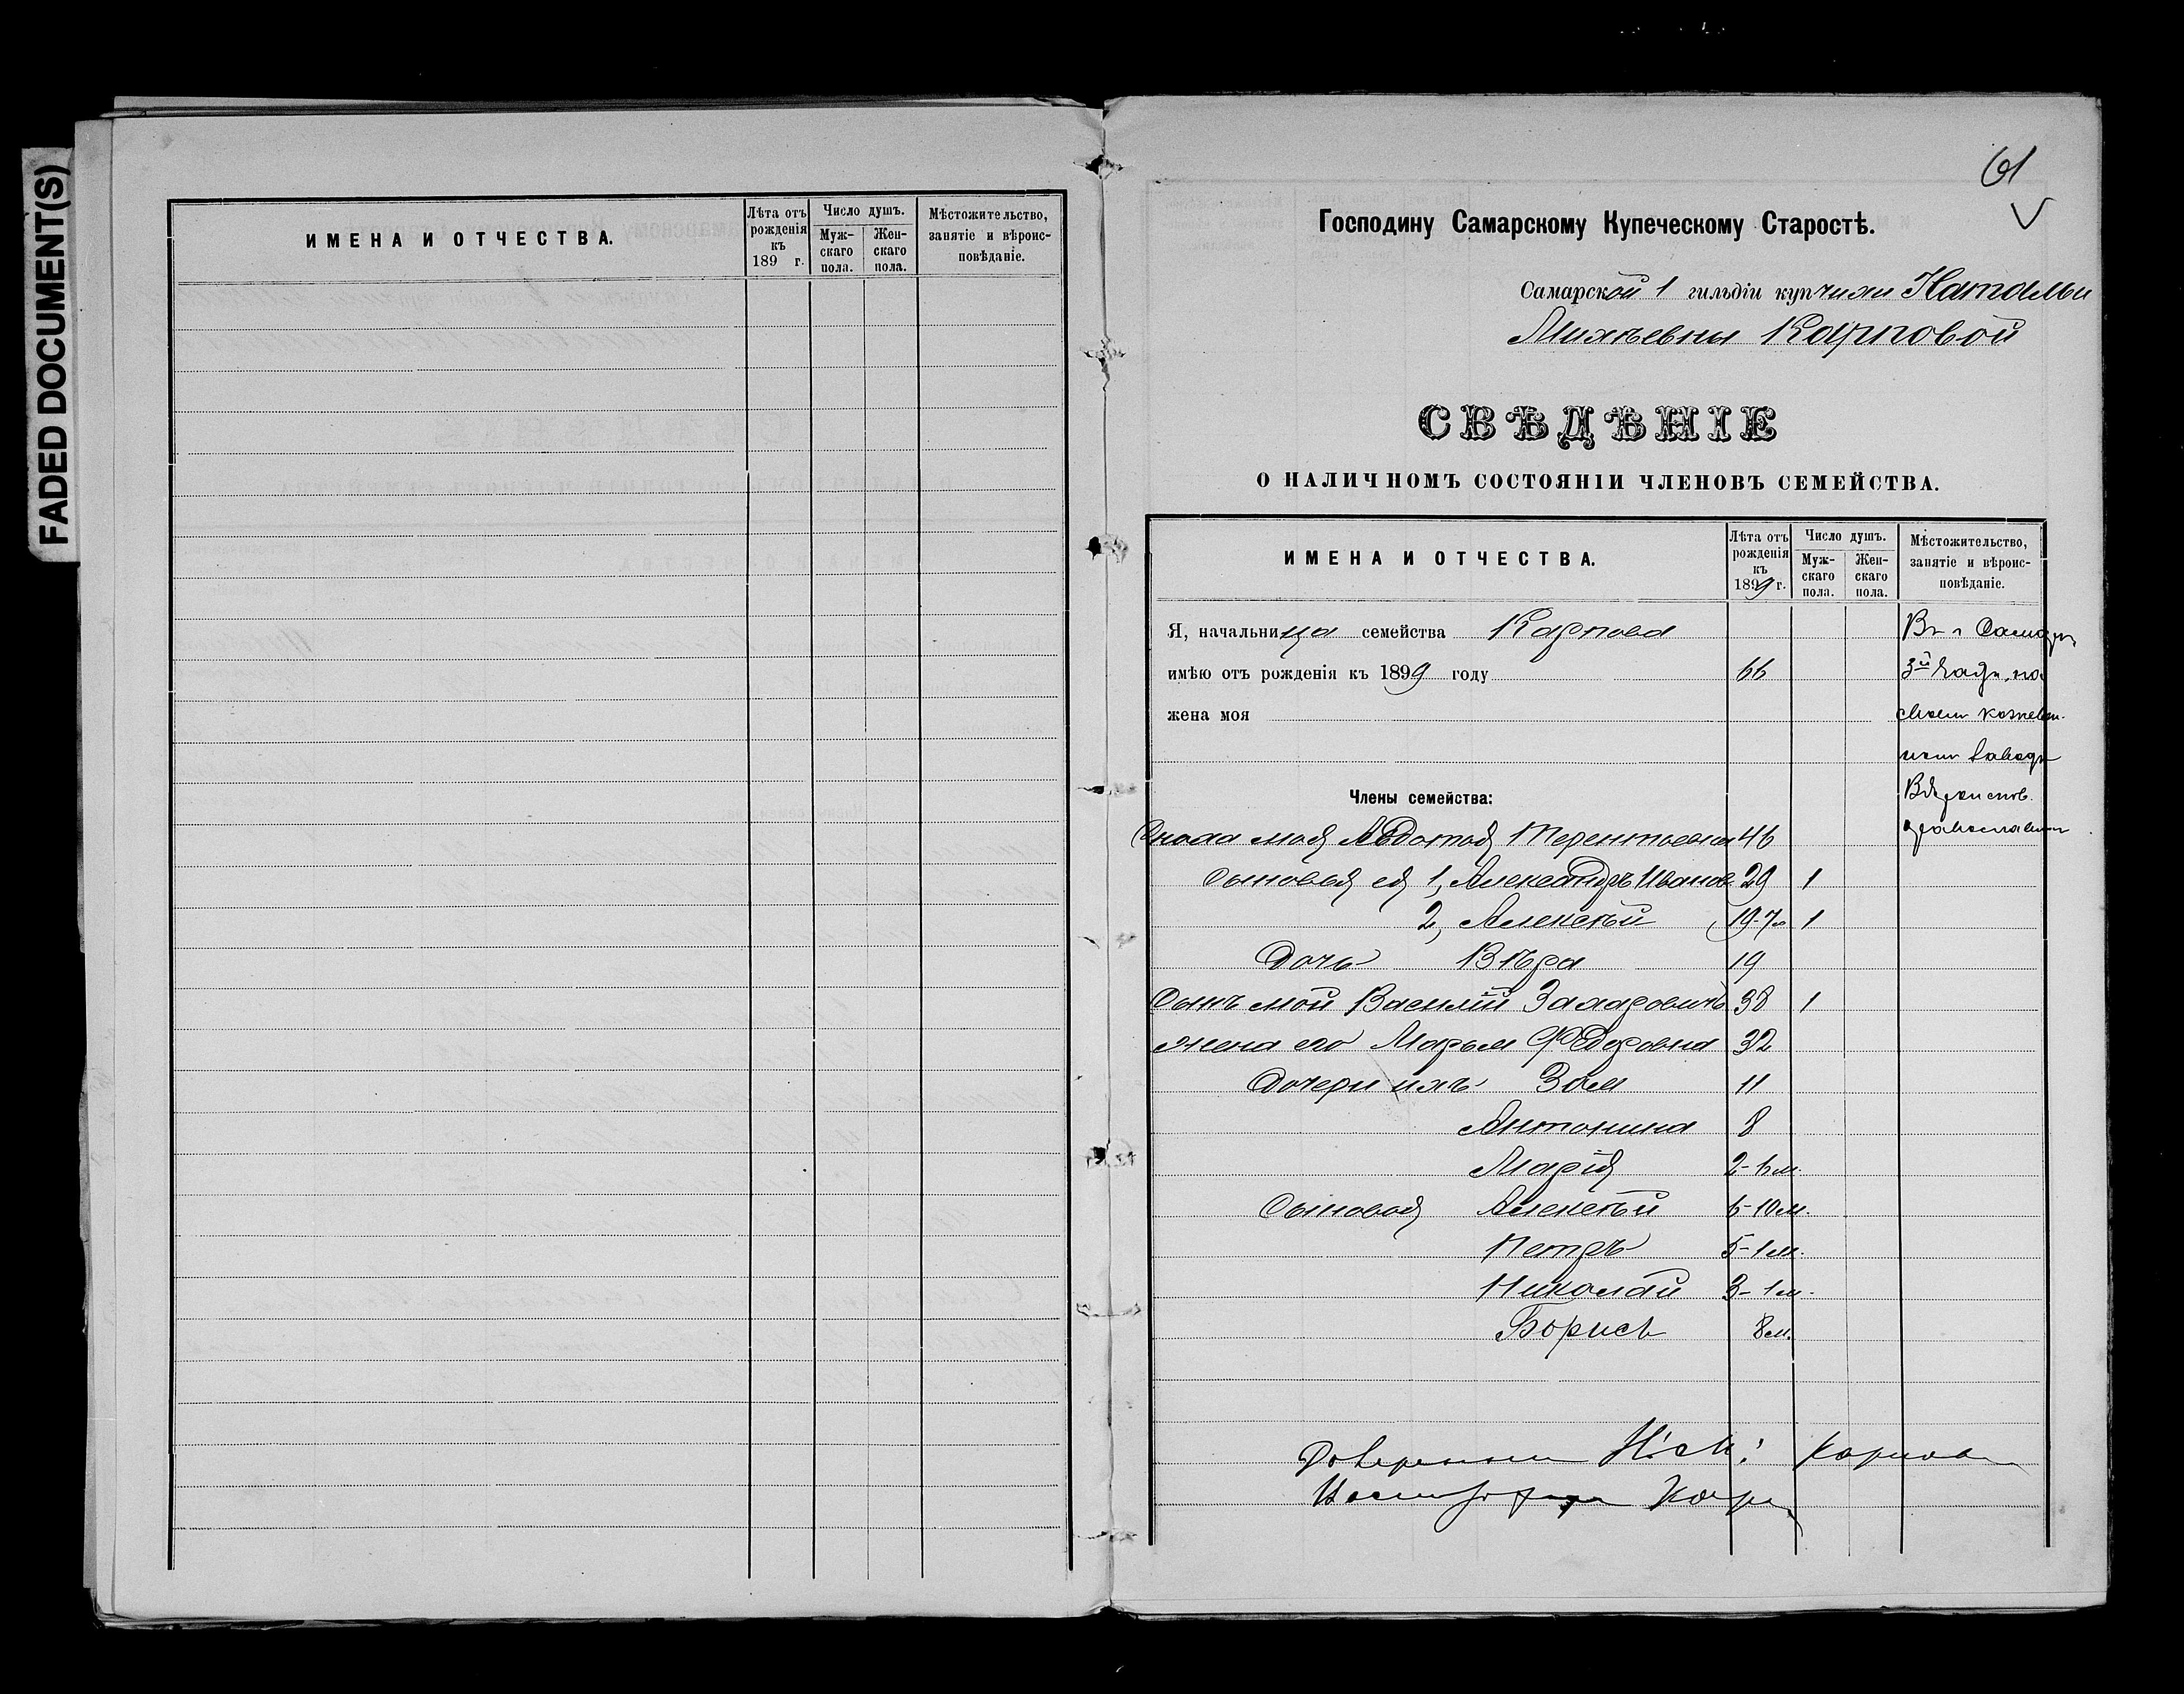 FADED DOCUMENT(S)
ИМЕНА И ОТЧЕСТВА.
Лѣта отъ рожденія къ 189 г.
Число душъ.
Мужскаго пола.
Женскаго пола.
Мѣстожительство, занятіе и вѣроисповѣданіе.
61
Господину Самарскому Купеческому Старостѣ.
Самарской 1 гильдіи купчихи Натальи
Михѣевны Карповой
СВѢДѢНІЕ
О НАЛИЧНОМЪ СОСТОЯНІИ ЧЛЕНОВЪ СЕМЕЙСТВА.
ИМЕНА И ОТЧЕСТВА.
Лѣта отъ рожденія къ 1899 г.
Число душъ.
Мужскаго пола.
Женскаго пола.
Мѣстожительство, занятіе и вѣроисповѣданіе.
Я, начальница семейства Карпова
имѣю отъ рожденія къ 1899 году 66
жена моя
Въ г Самарѣ
3й части, на
своем кожевен-
ном заводѣ
Вѣроиспов.
православн
Члены семейства:
Сноха моя Авдотья Терентьевна 46
Сыновья ея 1, Александръ Иванов. 29 1
2, Алексѣй 19 1
Дочь Вѣра 19
Сынъ мой Василій Захаровичъ 38 1
жена его Марья Федоровна 32
Дочери ихъ Зоя 11
Антонина 8
Марія 2-6 м.
Сыновья Алексѣй 6-10 м.
Петръ 5-1 м.
Николай 3-1 м.
Борисъ 8 м.
Доверенный Н. М. Карповой